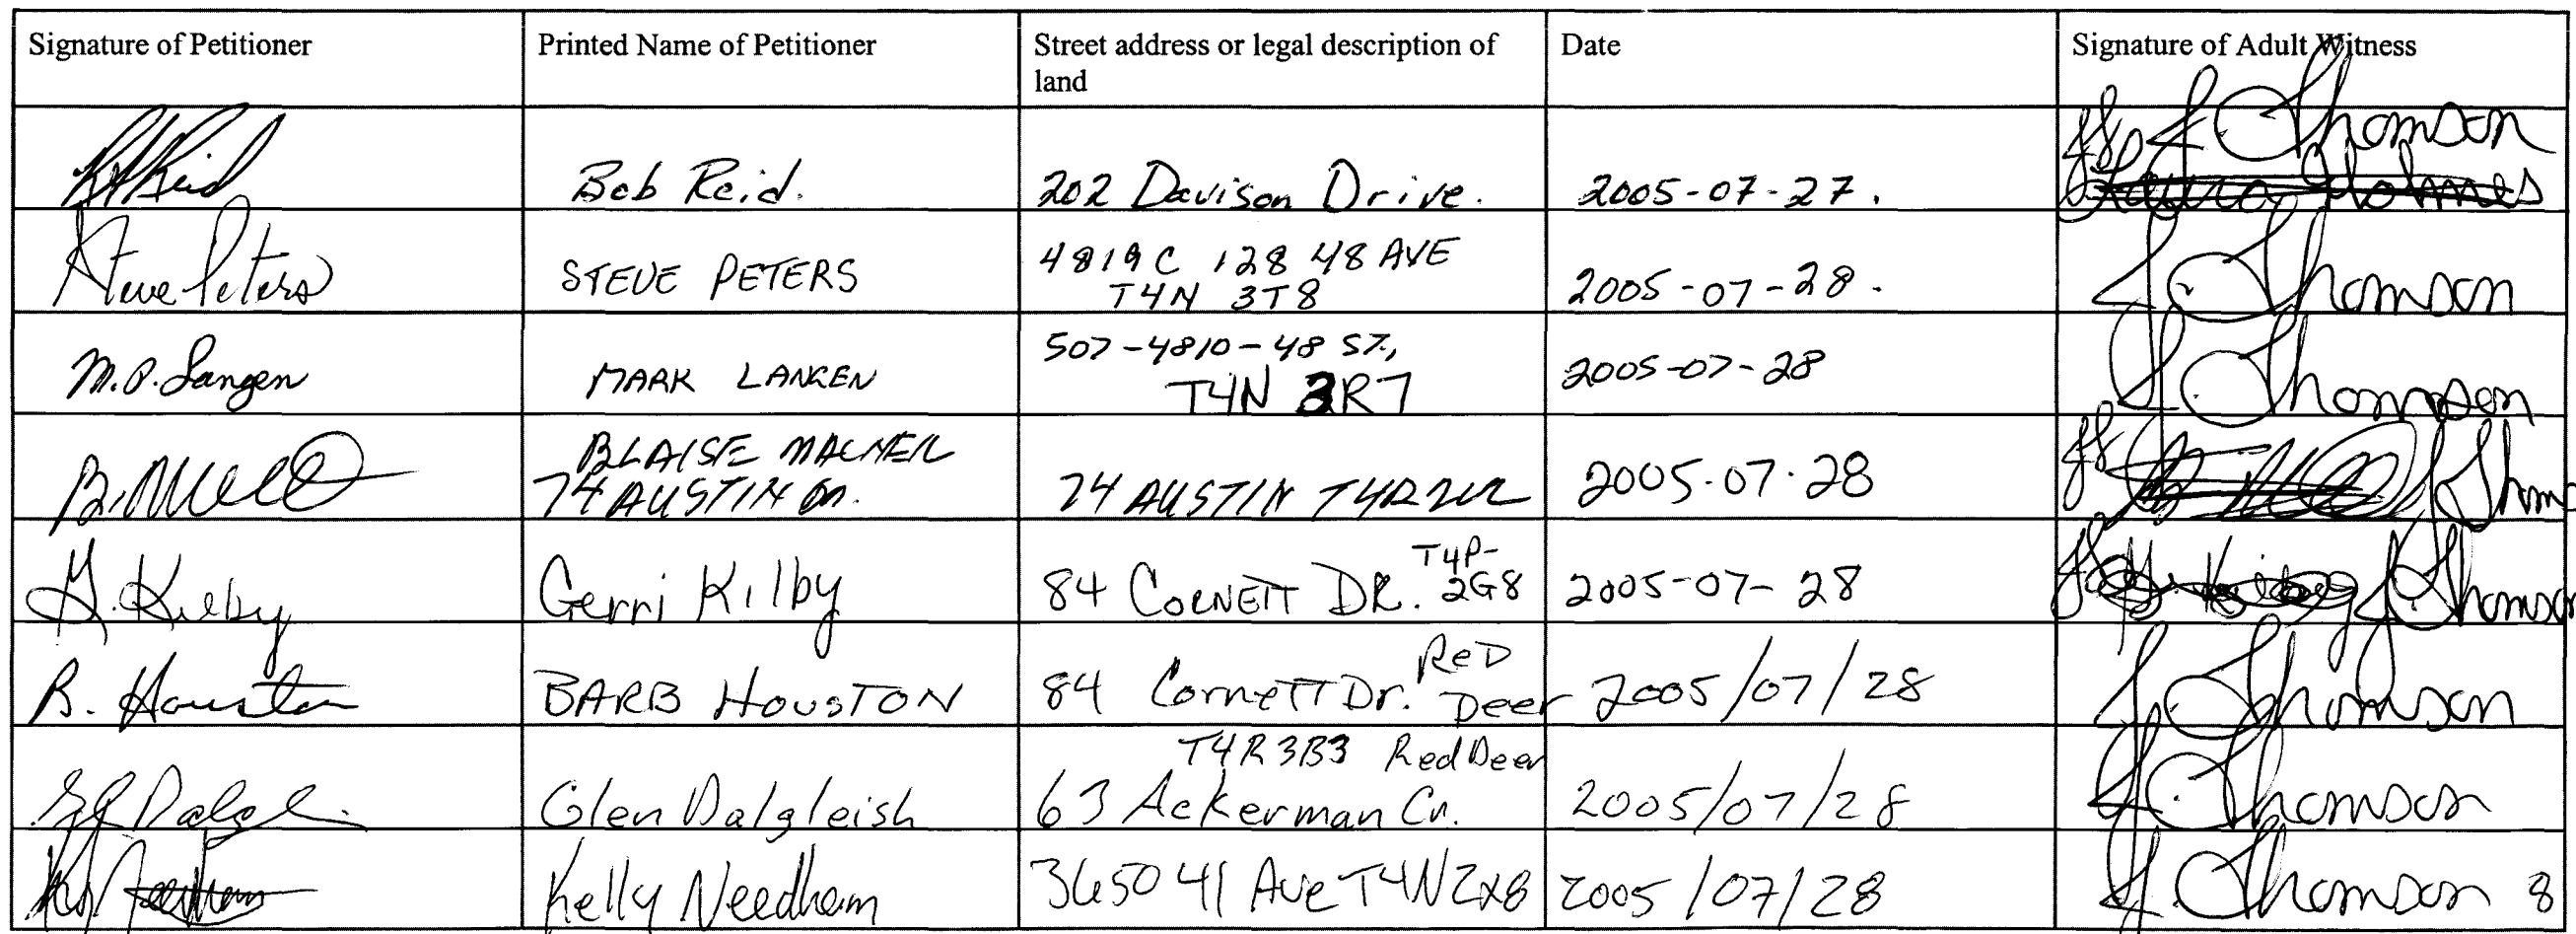 Signature of Petitioner
Printed Name of Petitioner
Street address or legal description of
land
Date
Signature of Adult Witness
Bob Reid.
202 Davison Drive.
2005-07-27.
Thomson
Laura Holmes
Steve Peters
STEVE PETERS
4819 C 128 48 AVE
T4N 3T8
2005-07-28.
Thomson
M.P. Langen
MARK LANGEN
507-4810-48 ST,
T4N 3R7
2005-07-28
Thomson
BLAISE MACNEIL
74 AUSTIN DR.
74 AUSTIN
2005.07.28
G. Kilby
Gerri Kilby
84 CORNETT DR.
T4P-
2G8
2005-07-28
Thomson
B. Houston
BARB HOUSTON
84 Cornett Dr.
Red
Deer
2005/07/28
Thomson
Glen Dalgleish
T4R 3B3 Red Deer
63 Ackerman Cr.
2005/07/28
Thomson
Kelly Needham
3650 41 Ave T4N 2X8
2005/07/28
Thomson
8